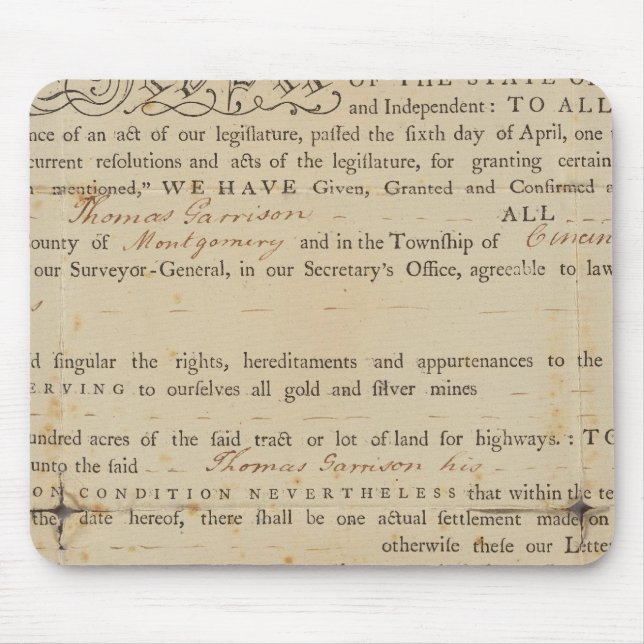 OF THE STATE O
and Independent: TO ALL
nce of an act of our legiſlature, paſſed the ſixth day of April, one
current reſolutions and acts of the legiſlature, for granting certain
mentioned,” WE HAVE Given, Granted and Confirmed a
Thomas Garrison ALL
ounty of Montgomery and in the Townſhip of Cincin
our Surveyor-General, in our Secretary’s Office, agreeable to law
s
d ſingular the rights, hereditaments and appurtenances to the
ERVING to ourſelves all gold and ſilver mines
undred acres of the ſaid tract or lot of land for highways. : TO
unto the ſaid Thomas Garrison his
ON CONDITION NEVERTHELESS that within the te
the date hereof, there ſhall be one actual ſettlement made on
otherwiſe theſe our Letter